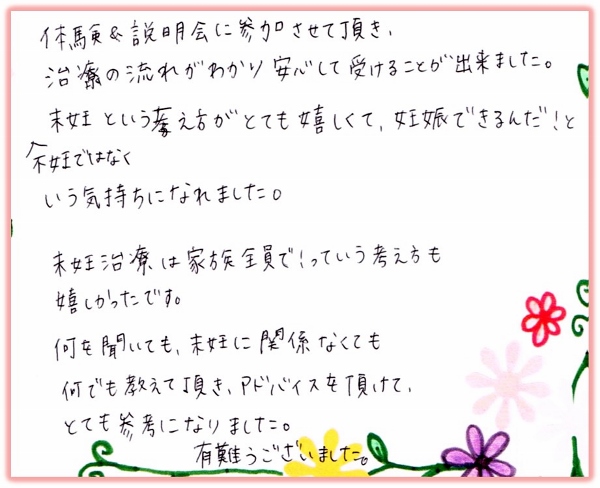 体験&説明会に参加させて頂き、
治療の流れがわかり安心して受けることが出来ました。
未妊という考え方がとても嬉しくて、妊娠できるんだ!と
不妊ではなく
いう気持ちになれました。
未妊治療は家族全員で!っていう考え方も
嬉しかったです。
何を聞いても、未妊に関係なくても
何でも教えて頂き、アドバイスを頂けて、
とても参考になりました。
有難うございました。